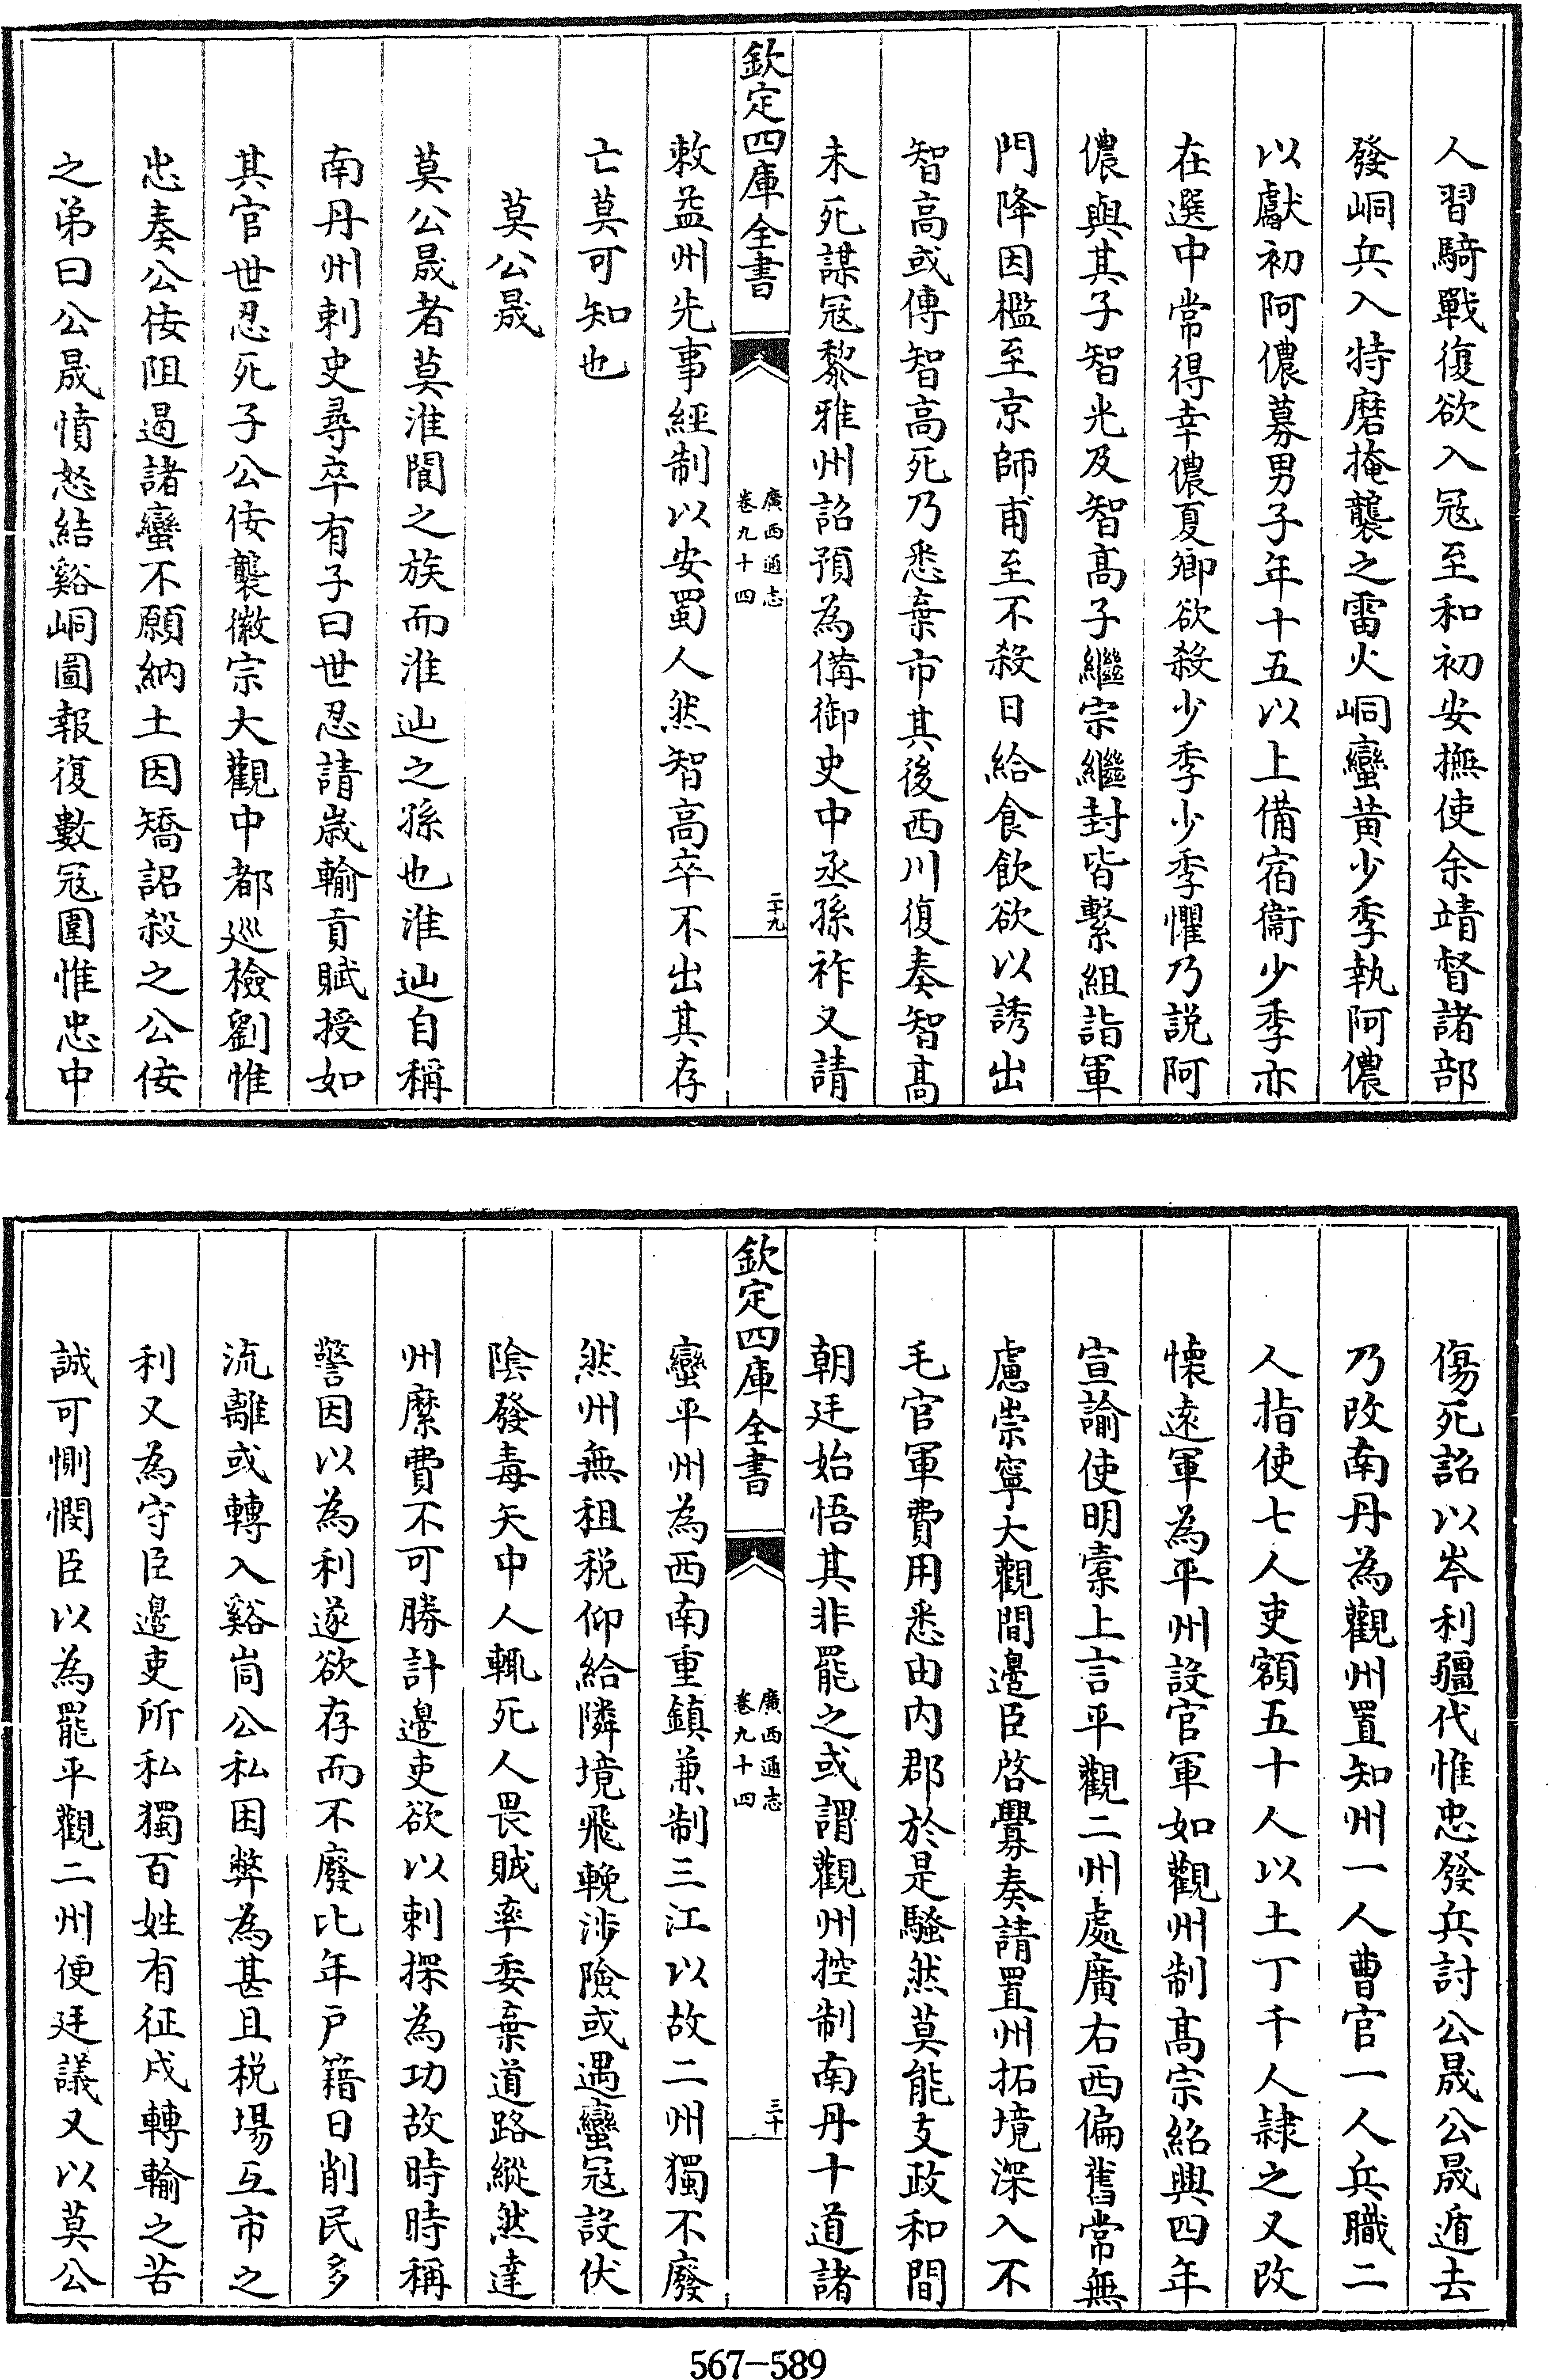 人習騎戰復欲入冦至和初安撫使余靖督諸部
發峒兵入特磨掩襲之雷火峒蠻黄少季執阿儂
以獻初阿儂募男子年十五以上備宿衞少季亦
在選中常得幸儂夏卿欲殺少季少季懼乃説阿
儂與其子智光及智髙子繼宗繼封皆繫組詣軍
門降因檻至京師甫至不殺日給食飲欲以誘出
智高或傳智高死乃悉棄市其後西川復奏智髙
未死謀冦黎雅州詔預為備御史中丞孫祚又請
欽定四庫全書
廣西通志
卷九十四
二十九
敕益州先事經制以安蜀人然智高卒不出其存
亡莫可知也
莫公晟
莫公晟者莫淮閬之族而淮辿之孫也淮辿自稱
南丹州刺史尋卒有子曰世忍請歳輸貢賦授如
其官世忍死子公佞襲徽宗大觀中都巡檢劉惟
忠奏公佞阻遏諸蠻不願納土因矯詔殺之公佞
之弟曰公晟憤怒結谿峒圖報復數冦圍惟忠中
傷死詔以岑利疆代惟忠發兵討公晟公晟遁去
乃改南丹為觀州置知州一人曹官一人兵職二
人指使七人吏額五十人以土丁千人隷之又改
懐逺軍為平州設官軍如觀州制髙宗紹興四年
宣諭使明橐上言平觀二州處廣右西偏舊常無
慮崇寧大觀間邉臣啓釁奏請置州拓境深入不
毛官軍費用悉由内郡於是騷然莫能支政和間
朝廷始悟其非罷之或謂觀州控制南丹十道諸
欽定四庫全書
廣西通志
卷九十四
三十
蠻平州為西南重鎮兼制三江以故二州獨不廢
然州無租税仰給隣境飛輓涉險或遇蠻冦設伏
陰發毒矢中人輒死人畏賊率委棄道路縱然達
州縻費不可勝計邉吏欲以刺探為功故時時稱
警因以為利遂欲存而不廢比年户籍日削民多
流離或轉入谿峝公私困弊為甚且税場互市之
利又為守臣邉吏所私獨百姓有征戍轉輸之苦
誠可惻憫臣以為罷平觀二州便廷議又以莫公
567-589